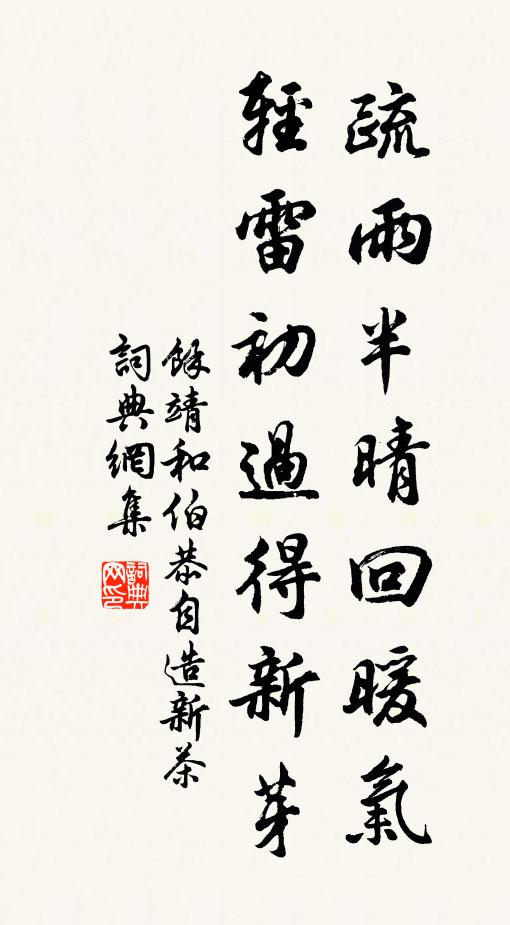 疏雨半晴回暖氣
輕雷初過得新芽
餘靖和伯恭自造新茶
詞典網集
詞典网印